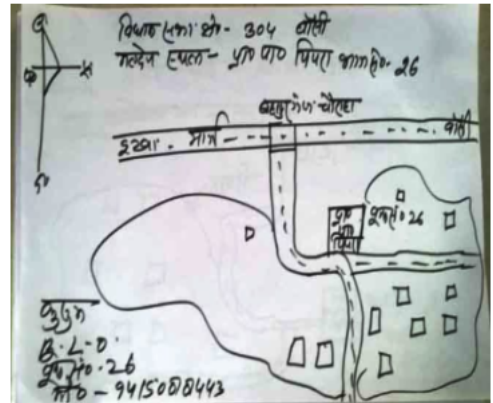 विधान सभा क्षे०- 304 बांसी
मतदेय स्थल- प्रा० पा० पिपरा भाग सं०- 26
चौराहा
इटवा मार्ग
बांसी
प्रा०
पा०
पिपरा
बूथ सं० 26
B.L.O.
बूथ सं०- 26
मो० - 9415088443